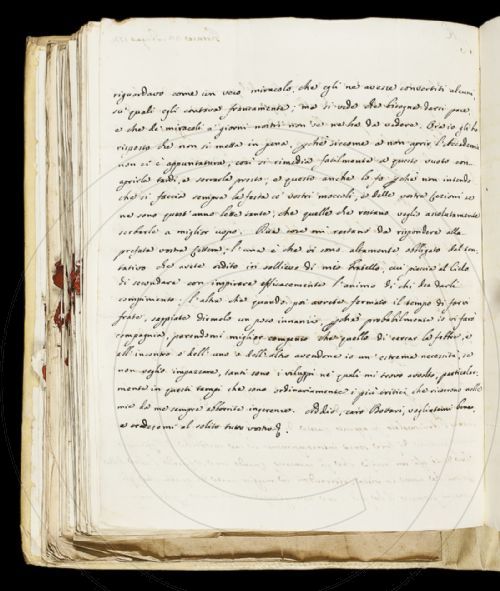 riguardavo come un vero miracolo, che egli ne avesse convertiti alcuni,
su' quali egli contava francamente; ma si vede che bisogna darsi pace,
e che de' miracoli a' giorni nostri non se ne ha da vedere. Or io gli ho
risposto che non si metta in pena, perché siccome a non aprir l'Accademia
non ci è appuntatura, così si rimedia facilmente a questo vuoto con
aprirla tardi, e serrarla presto, e questo anche lo fo perché non intendo
che si faccia sempre la festa co' vostri moccoli, e delle vostre lezioni se
ne sono quest'anno lette tante, che quelle che restano voglio assolutamente
serbarle a miglior uopo. Due cose mi restano da rispondere alla
prefata vostra lettera; l'una è che vi sono altamente obbligato del ten-
tativo che avete ridito in sollievo di mio fratello, cui piaccia al Cielo
di secondare con inspirare efficacemente l'animo di chi ha da dargli
compimento: l'altra che quando poi avrete formato il tempo di farvi
frate, sappiate dirmelo un poco innanzi, perché probabilmente io vi farò
compagnia, parendomi miglior compenso che quello di cercar la febbre, e
all'incontro o dell'uno o dell'altro avendone io un'estrema necessità, se
non voglio impazzare, tanti sono i viluppi ne' quali mi trovo avvolto, particolar-
mente in questi tempi che sono ordinariamente i più critici che ricorrono nelle
mie da me sempre abborrite ingerenze. Addio, caro Bottari, vogliatemi bene,
e credetemi al solito tutto vostro.